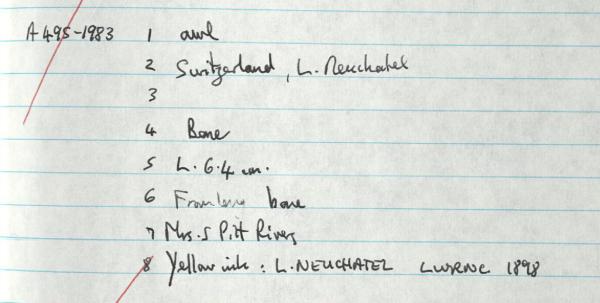 A 495-1983 1 awl
2 Switzerland, L. Neuchatel
3
4 Bone
5 L. 6.4 cm.
6 bone
7 Mrs. S Pitt Rivers
8 Yellow ink : L. NEUCHATEL LWRNC 1898